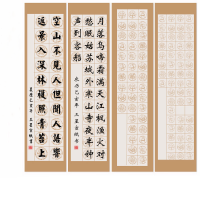 月落烏啼霜滿天江楓漁火對
愁眠姑蘇城外寒山寺夜半鐘
聲到客船
空山不見人但聞人語響
返景入深林復照青苔上